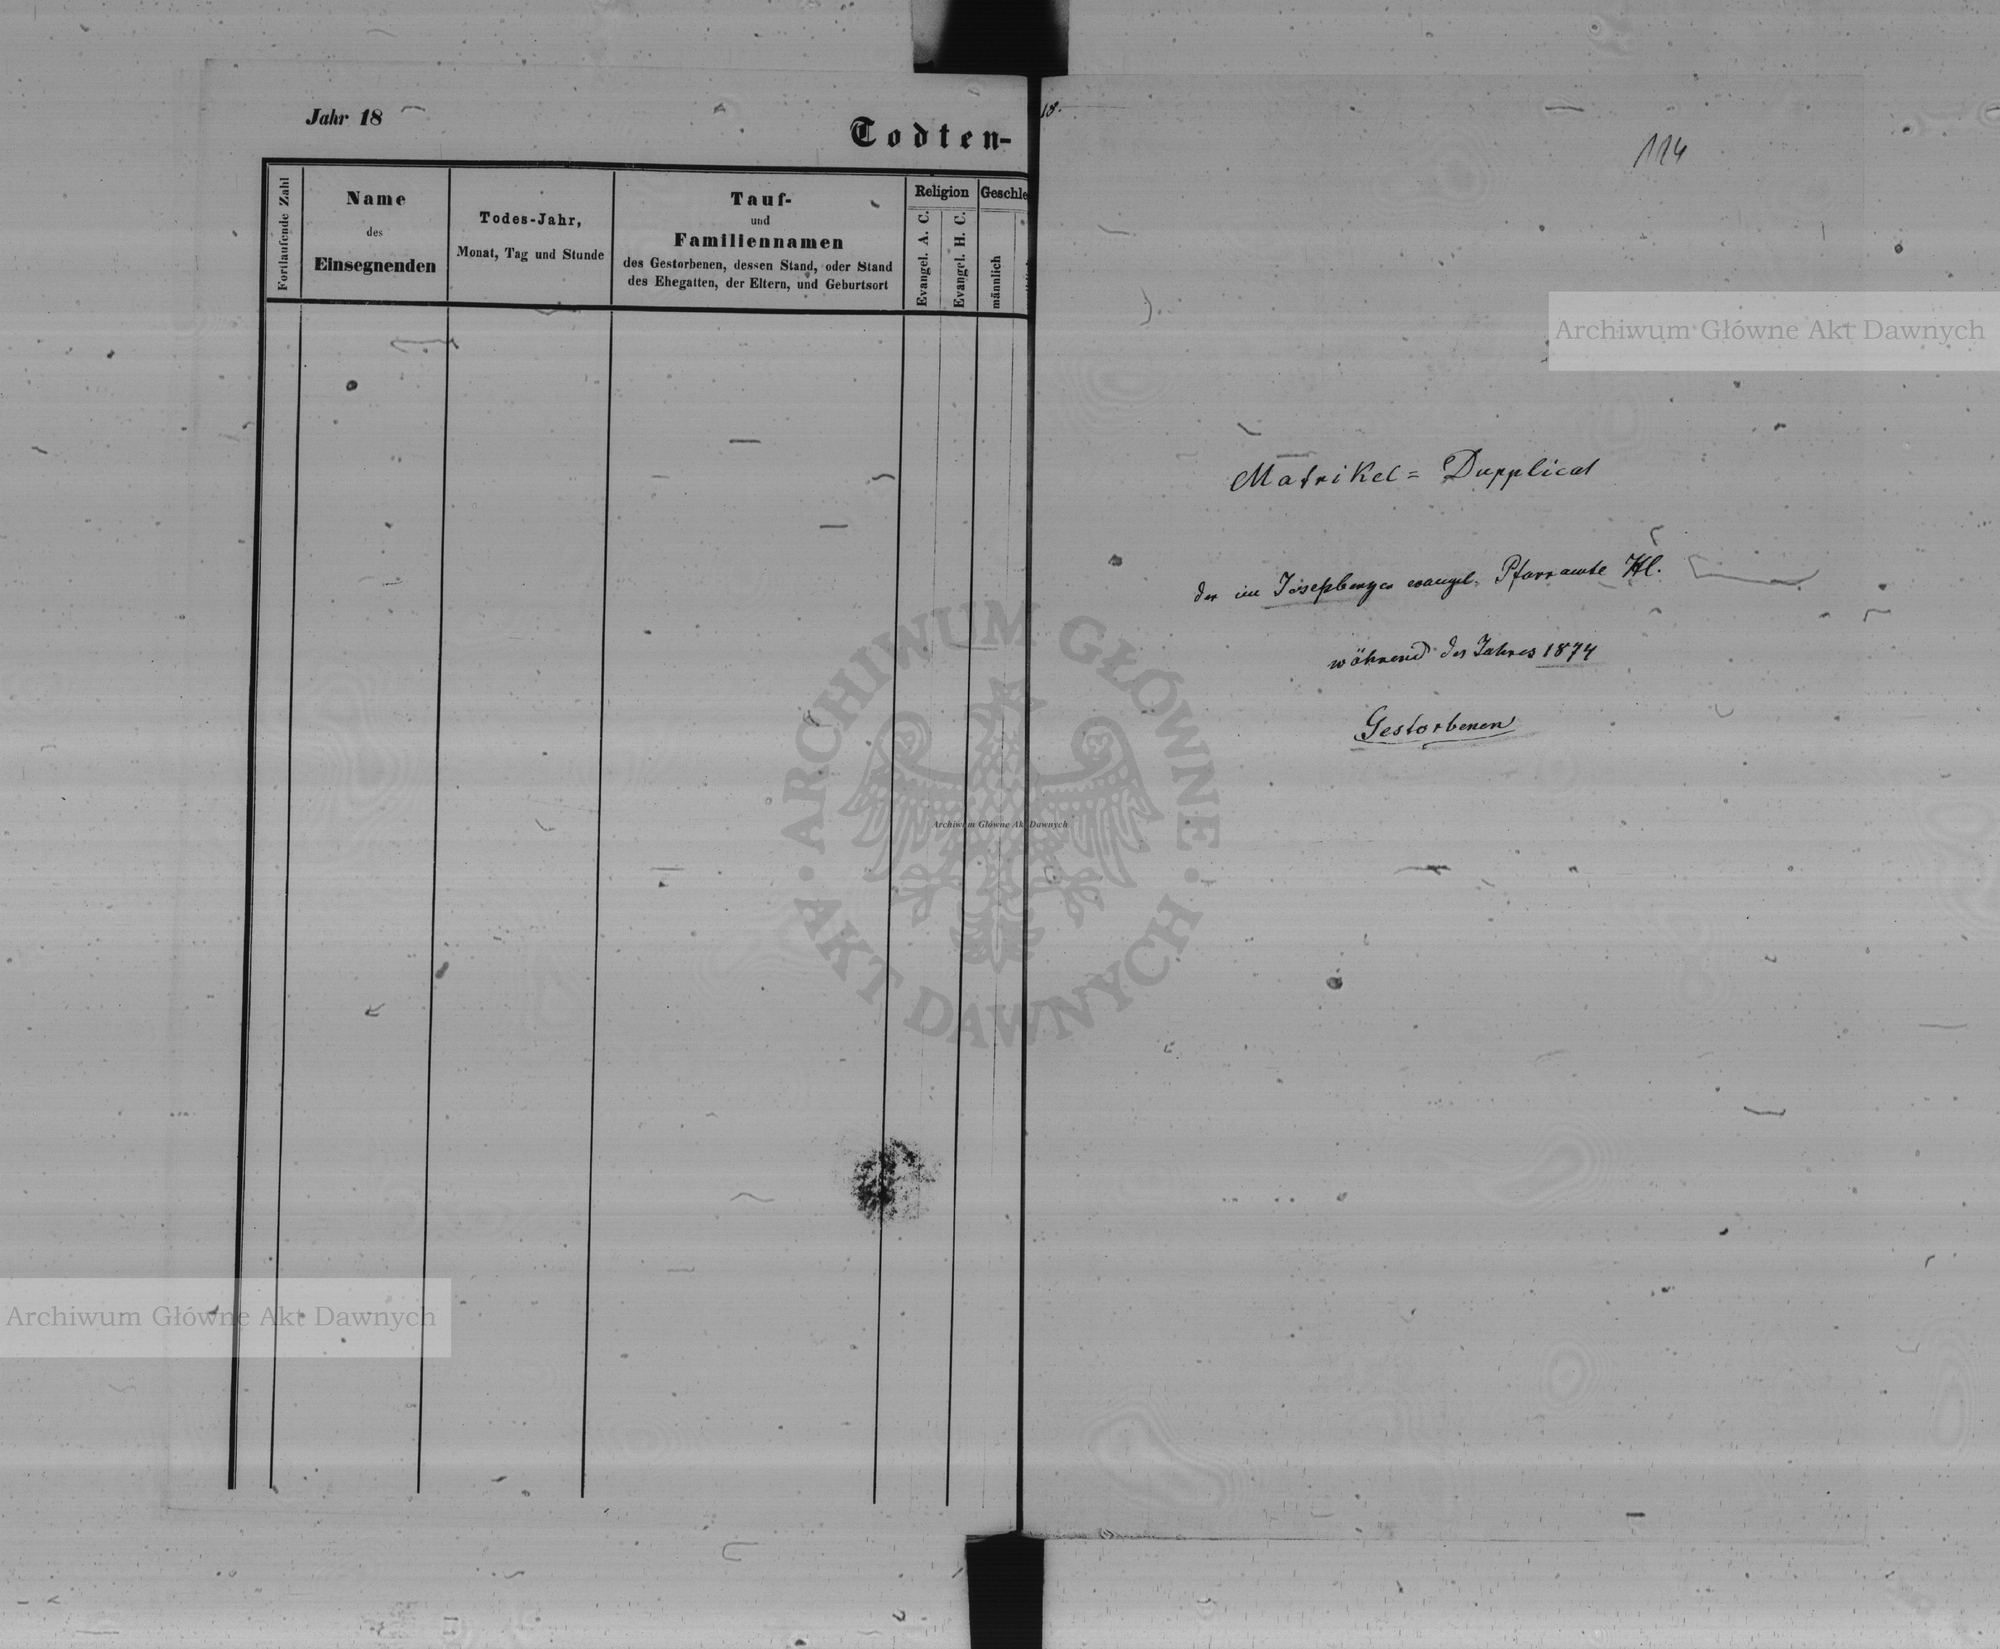 Jahr 18
Todten-
Fortlaufende Zahl
Name
des
Einsegnenden
Todes-Jahr,
Monat, Tag und Stunde
Tauf-
und
Familiennamen
des Gestorbenen, dessen Stand, oder Stand
des Ehegatten, der Eltern, und Geburtsort
Religion
Evangel. A. C.
Evangel. H. C.
Geschle
männlich
18.
114
Matrikel = Dupplicat
der im Josephberger evangel. Pfarramte
während des Jahres 1874
Gestorbenen
Archiwum Główne Akt Dawnych
ARCHIWUM GŁÓWNE
AKT DAWNYCH
Archiwum Główne Akt Dawnych
Archiwum Główne Akt Dawnych